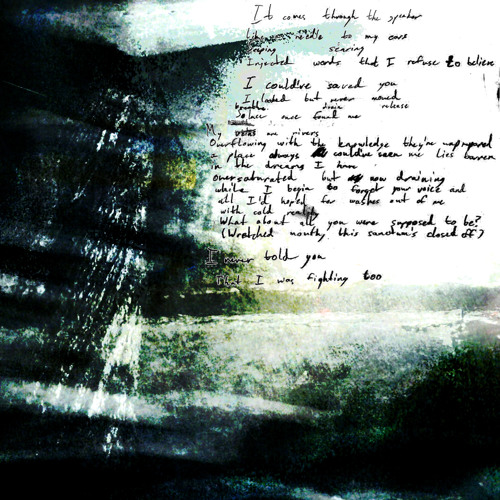 It comes through the speaker
like needle to my ears
Weeping searing
Injected words that I refuse to believe
I could've saved you
I looked but never moved
release
Solace once found me
My are rivers
Overflowing with the knowledge they're unprepared
A place always could've seen me lies barren
in the dreams I have
oversaturated but now draining
while I begin to forget your voice and
all I'd hoped for washes out of me
with cold reality
What about all you were supposed to be?
(Wretched mouth, this sanctum's closed off)
I never told you
That I was fighting too